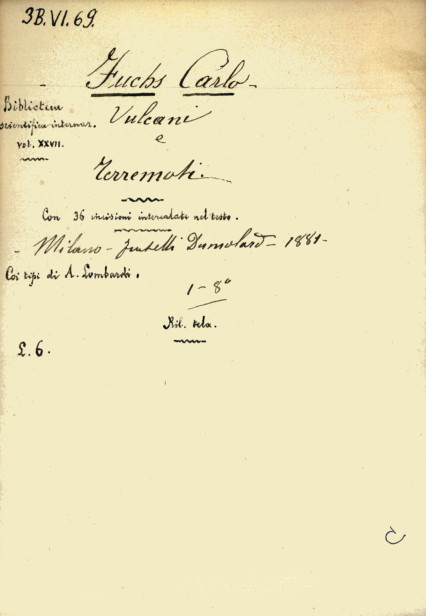 3B.VI.69.
Fuchs Carlo
Biblioteca
scientifica internaz.
vol. XXVII.
Vulcani
e
Terremoti.
Con 36 incisioni intercalate nel testo.
- Milano - fratelli Dumolard - 1881-
Coi tipi di A. Lombardi.
1-8°
Ril. tela.
£.6.